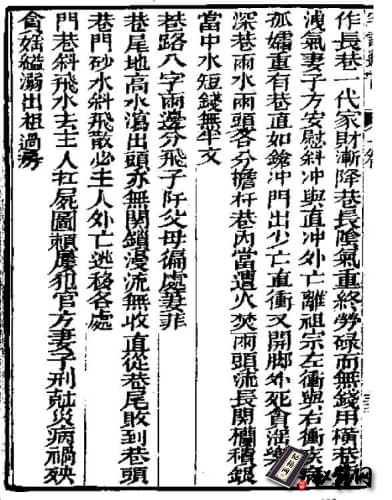 作長巷一代家財漸降巷長嗆氣重終勞碌而無錢用橫巷
洩氣妻子方安慰斜冲與直冲外亡離祖宗左衝與右衝疾
孤孀重有巷直如鎗冲門出少亡直衝又開脚外死貪
深巷雨水兩頭各分擔杆巷內當遭火焚兩頭流長開欄積銀
當中水短錢無半文
巷路八字兩邊分飛子阡父母徧處妻菲
巷尾地高水瀉出頭亦無関鎖漫流無收直從巷尾敗到巷頭
巷門砂水斜飛散必主人外亡逃移各處
門巷斜飛水去主人扛屍圖賴屢犯官方妻子刑尅災病禍殃
貪婬鑑溺出祖過房